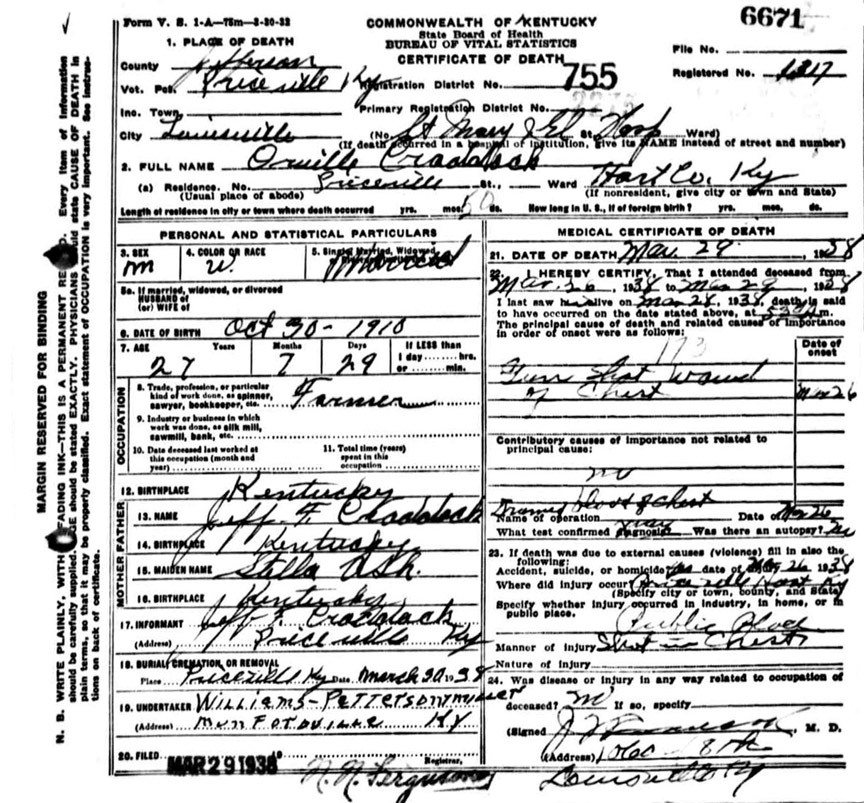 Form V. S. 1-A—75m—8-20-32
COMMONWEALTH OF KENTUCKY
State Board of Health
BUREAU OF VITAL STATISTICS
CERTIFICATE OF DEATH
6671
File No.
Registered No. 1317
1. PLACE OF DEATH
County Jefferson
Vot. Pct. Priceville Ky
Registration District No. 755
Inc. Town
Primary Registration District No.
City Louisville (No. St Mary & El St. Hosp Ward)
(If death occurred in a hospital or institution, give its NAME instead of street and number)
2. FULL NAME Orville Craddock
(a) Residence. No. Priceville St., Ward Hart Co. Ky
(Usual place of abode) (If nonresident, give city or town and State)
Length of residence in city or town where death occurred yrs. mos. ds. How long in U. S., if of foreign birth? yrs. mos. ds.
PERSONAL AND STATISTICAL PARTICULARS
3. SEX m
4. COLOR OR RACE W.
5. Single, Married, Widowed,
5a. If married, widowed, or divorced
HUSBAND of
(or) WIFE of
6. DATE OF BIRTH Oct 30 - 1910
7. AGE Years Months Days If LESS than
27 7 29 1 day ........ hrs.
or ........ min.
OCCUPATION
8. Trade, profession, or particular
kind of work done, as spinner,
sawyer, bookkeeper, etc. Farmer
9. Industry or business in which
work was done, as silk mill,
sawmill, bank, etc.
10. Date deceased last worked at
this occupation (month and
year)
11. Total time (years)
spent in this
occupation
12. BIRTHPLACE Kentucky
FATHER
13. NAME Jeff F Craddock
14. BIRTHPLACE Kentucky
MOTHER
15. MAIDEN NAME Stella Ash.
16. BIRTHPLACE Kentucky
17. INFORMANT Jeff F Craddock
(Address) Priceville Ky
18. BURIAL, CREMATION, OR REMOVAL
Place Priceville Ky Date March 30 1938
19. UNDERTAKER Williams-Petterson
(Address) Munfordville Ky
20. FILED MAR 29 1938 N. N. Ferguson Registrar.
MEDICAL CERTIFICATE OF DEATH
21. DATE OF DEATH Mar. 29, 1938
22. I HEREBY CERTIFY, That I attended deceased from
Mar. 26, 1938 to Mar 29, 1938
I last saw him alive on Mar 28, 1938, death is said
to have occurred on the date stated above, at m.
The principal cause of death and related causes of importance
in order of onset were as follows:
Date of
onset
173
Gun shot wound
of Chest Mar 26
Contributory causes of importance not related to
principal cause:
no
blood of chest
Name of operation Date of Mar 26
What test confirmed diagnosis? Xray Was there an autopsy? No
23. If death was due to external causes (violence) fill in also the
following:
Accident, suicide, or homicide? date of Mar 26 1938
Where did injury occur? Priceville Hart Ky
(Specify city or town, county, and State)
Specify whether injury occurred in industry, in home, or in
public place. Public Place
Manner of Injury Shot in Chest
Nature of Injury
24. Was disease or injury in any way related to occupation of
deceased? No If so, specify
(Signed) M. D.
(Address)
Louisville Ky
MARGIN RESERVED FOR BINDING
N. B. WRITE PLAINLY, WITH UNFADING INK—THIS IS A PERMANENT RECORD. Every item of information
should be carefully supplied. AGE should be stated EXACTLY. PHYSICIANS should state CAUSE OF DEATH in
plain terms, so that it may be properly classified. Exact statement of OCCUPATION is very important. See instruc-
tions on back of certificate.